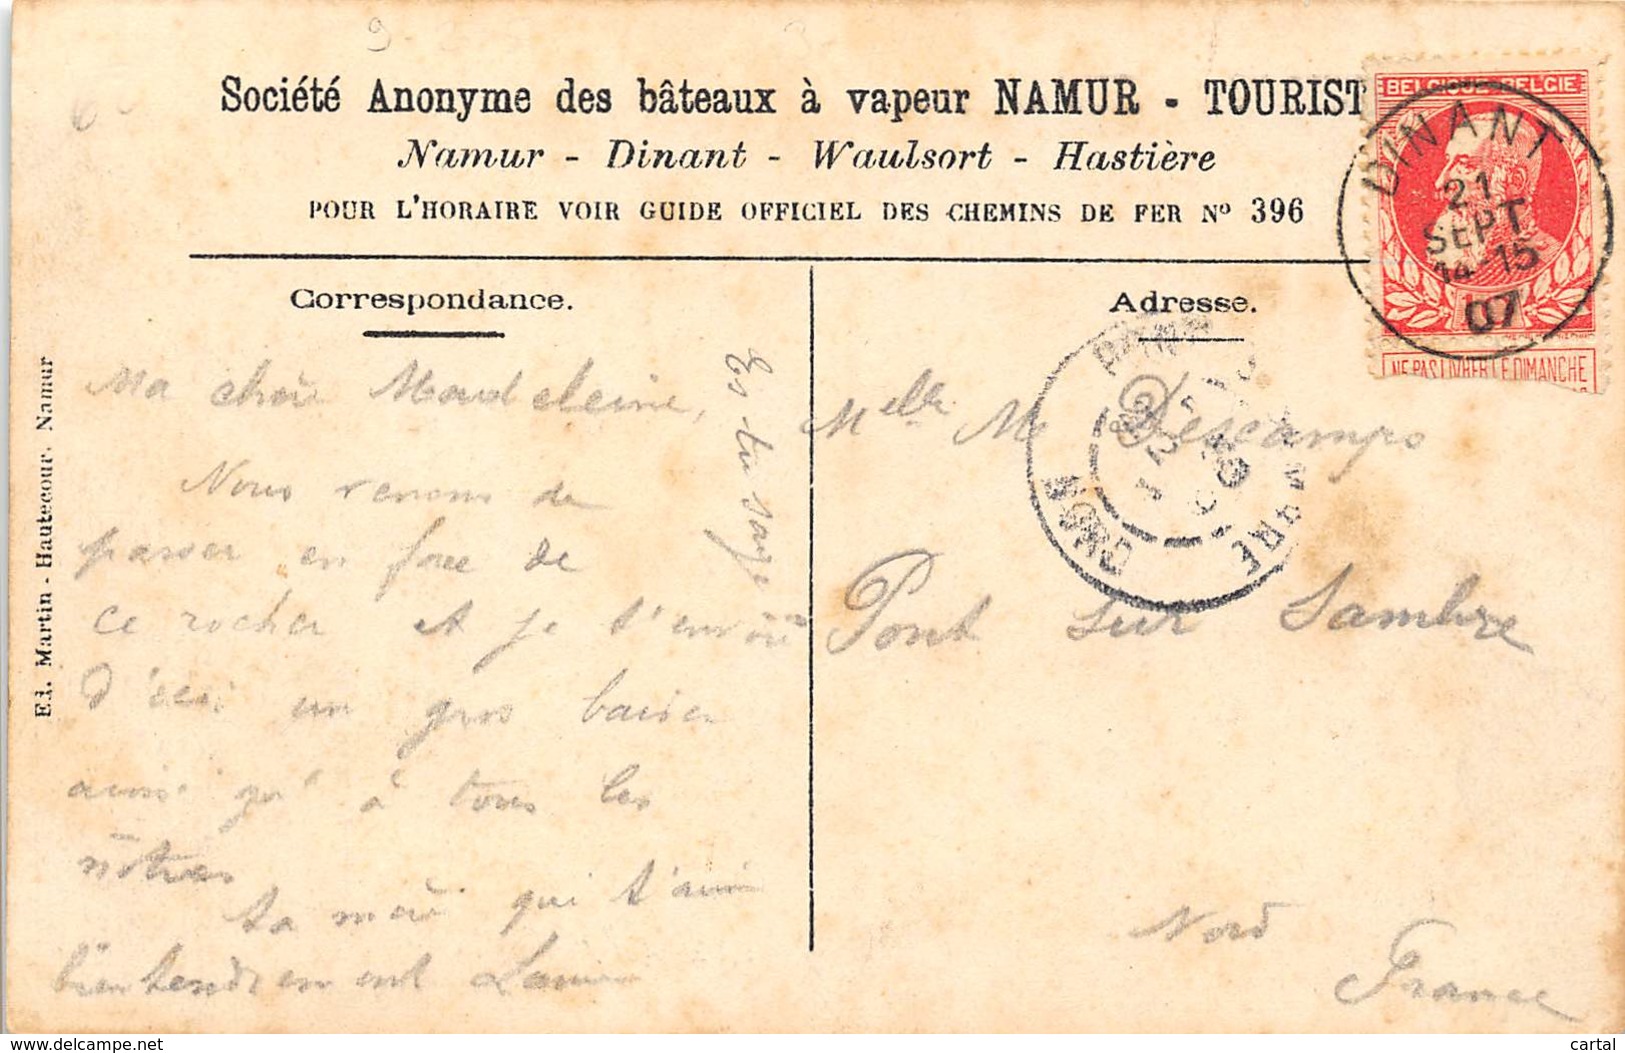 Société Anonyme des bâteaux à vapeur NAMUR - TOURIST
Namur - Dinant - Waulsort - Hastière
POUR L'HORAIRE VOIR GUIDE OFFICIEL DES CHEMINS DE FER Nº 396
BELGIQUE BELGIE
DINANT
21
SEPT
14-15
07
NE PAS LIVRER LE DIMANCHE
Correspondance.
Adresse.
Ma chère Madeleine,
Nous venons de
passer en face de
ce rocher et je t'envoie
d'ici un gros baiser
ainsi qu' à tous les
nôtres
ta mère qui t'aime
bien tendrement
Es-tu sage
Melle M Descamps
Pont sur Sambre
Nord
France
Ed. Martin - Hautecour, Namur
www.delcampe.net
cartal